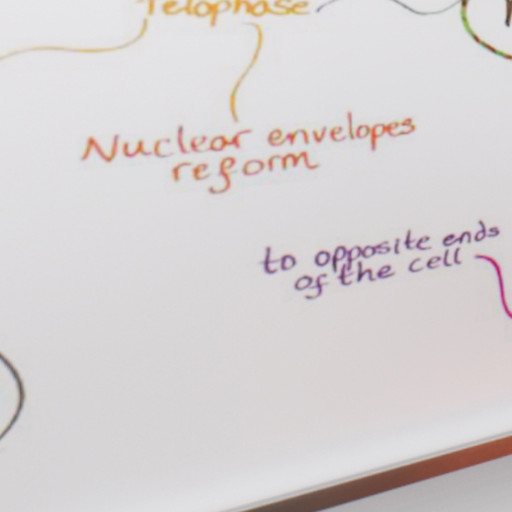 Telophase
Nuclear envelopes
reform
to opposite ends
of the cell